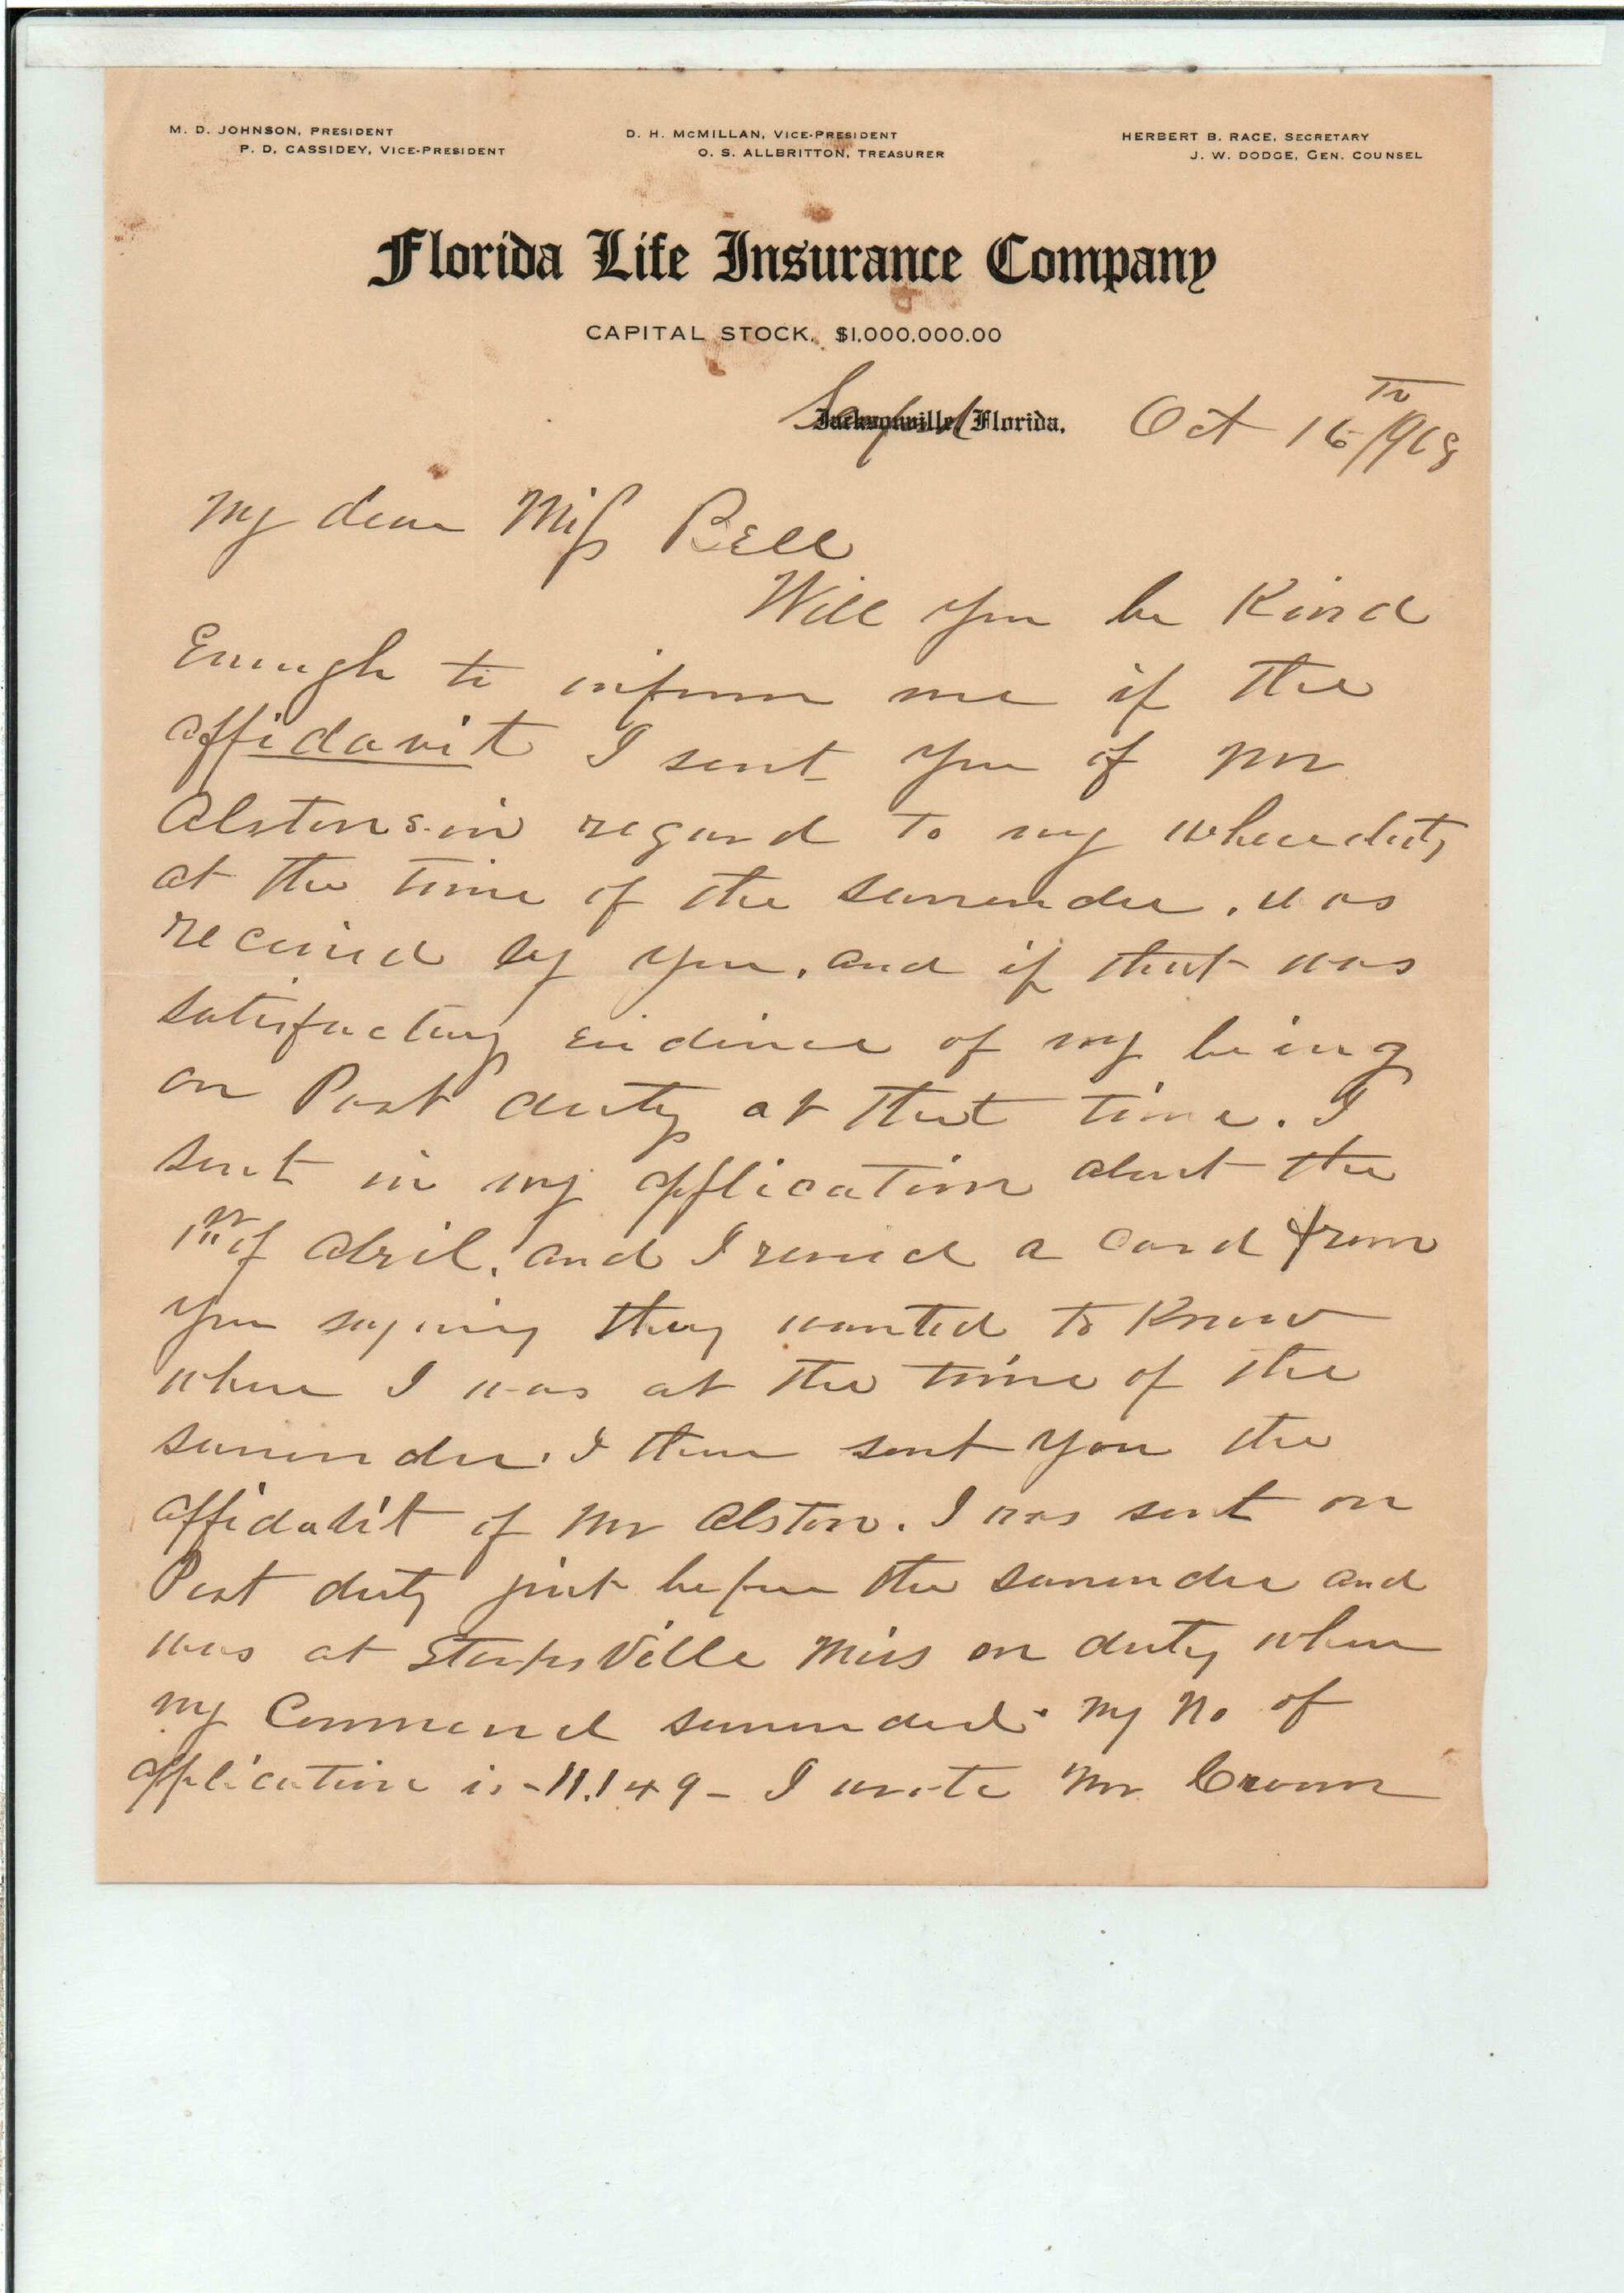 M. D. JOHNSON, PRESIDENT
P. D. CASSIDEY, VICE-PRESIDENT
D. H. McMILLAN, VICE-PRESIDENT
O. S. ALLBRITTON, TREASURER
HERBERT B. RACE, SECRETARY
J. W. DODGE, GEN. COUNSEL
Florida Life Insurance Company
CAPITAL STOCK, $1,000,000.00
Jacksonville, Florida. Oct 16
My dear Miss Bell
Will you be Kind
Enough to inform me if the
affidavit I sent you of Mr
Alstons in regard to my
at the time of the surrender, was
received by you, and if that was
satisfactory evidence of my being
on Post duty at that time. I
sent in my application about the
1st of April, and I received a card from
you saying they wanted to Know
where I was at the time of the
surrender. I then sent you the
affidavit of Mr Alston. I was sent on
Post duty just before the surrender and
was at Starksville Miss on duty when
my Command surrendered. My No of
application is - 11.149 - I wrote Mr Croom